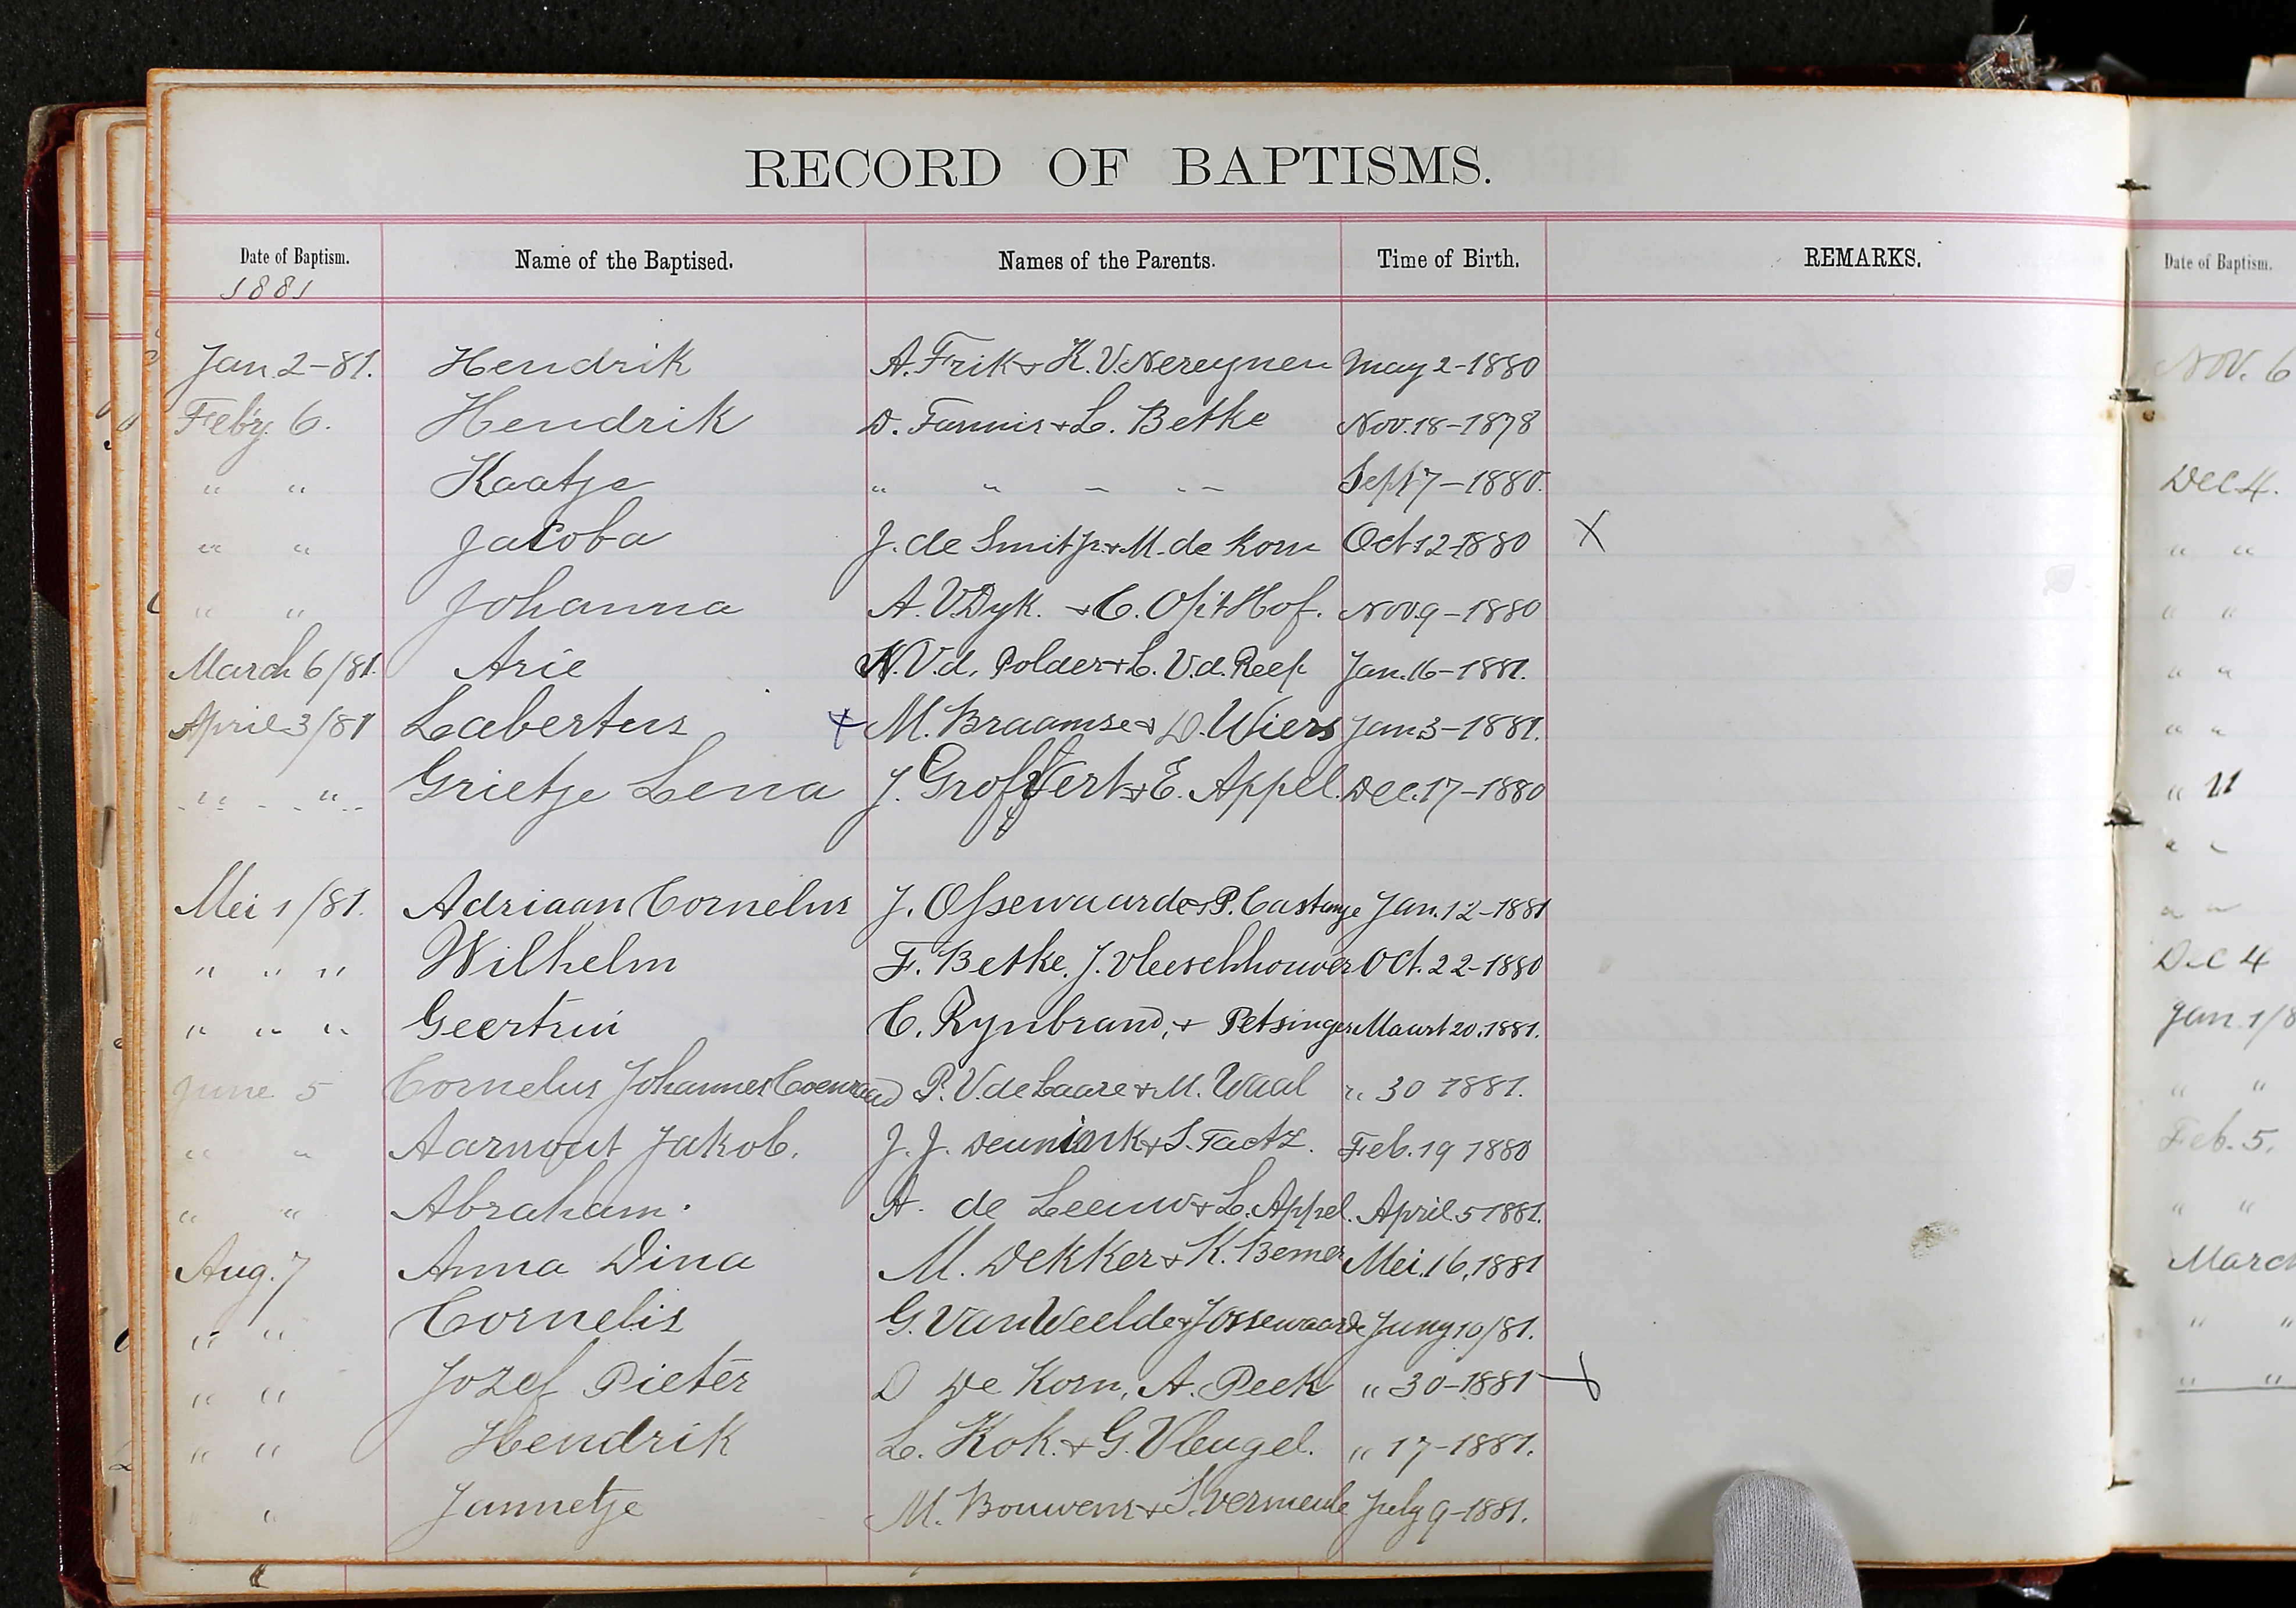 RECORD OF BAPTISMS.
Date of Baptism. Name of the Baptised. Names of the Parents. Time of Birth. REMARKS. Date of Baptism.
1881
Jan. 2-81. Hendrik A. Frik & K. V. Nereynen May 2-1880 Nov. 6
Feby. 6. Hendrik D. Fannis & L. Betke Nov. 18-1878
" " Kaatje " " - - - Sept 7-1880. Dec 4.
" " Jacoba J. de Smit Jr. & M. de Korn Oct 12-1880 X " "
" " Johanna A. V Dyk. & C. Op't Hof. Nov. 9-1880 " "
March 6/81. Arie N. V.d. Polder & L. V.d. Reep Jan. 16-1881. " "
April 3/81 Labertus + M. Braamse & D. Wiers Jan. 3-1881. " "
" " Grietje Lena J. Groffert & E. Appel. Dec. 17-1880 " 11
" "
Mei 1/81. Adriaan Cornelus J. Ossewaarde & P. Castanje Jan. 12-1881 " "
" " " Wilhelm F. Betke. J. Vleeschhouwer Oct. 22-1880 Dec 4
" " " Geertrui C. Rynbrand, & Petsinger Maart 20. 1881. Jan 1/8
June 5 Cornelus Johannes Coenraad P. V. de Laare & M. Waal " 30 1881. " "
" " Aarnout Jakob. J. J. & S. Feb. 19 1880 Feb. 5.
" " Abraham. A. de Leeuw & L. Appel. April. 5 1881. " "
Aug. 7 Anna Dina M. Dekker & K. Bemer Mei. 16, 1881 March
" " Cornelis G. Van Weelde & J Ossewaarde Juny 10/81. " "
" " Jozef Pieter D De Korn, A. Peek " 30-1881 X " "
" " Hendrik L. Kok. & G. Vleugel. " 17-1881.
" Jannetje M. Bouwens & S. Vermeule July 9-1881.